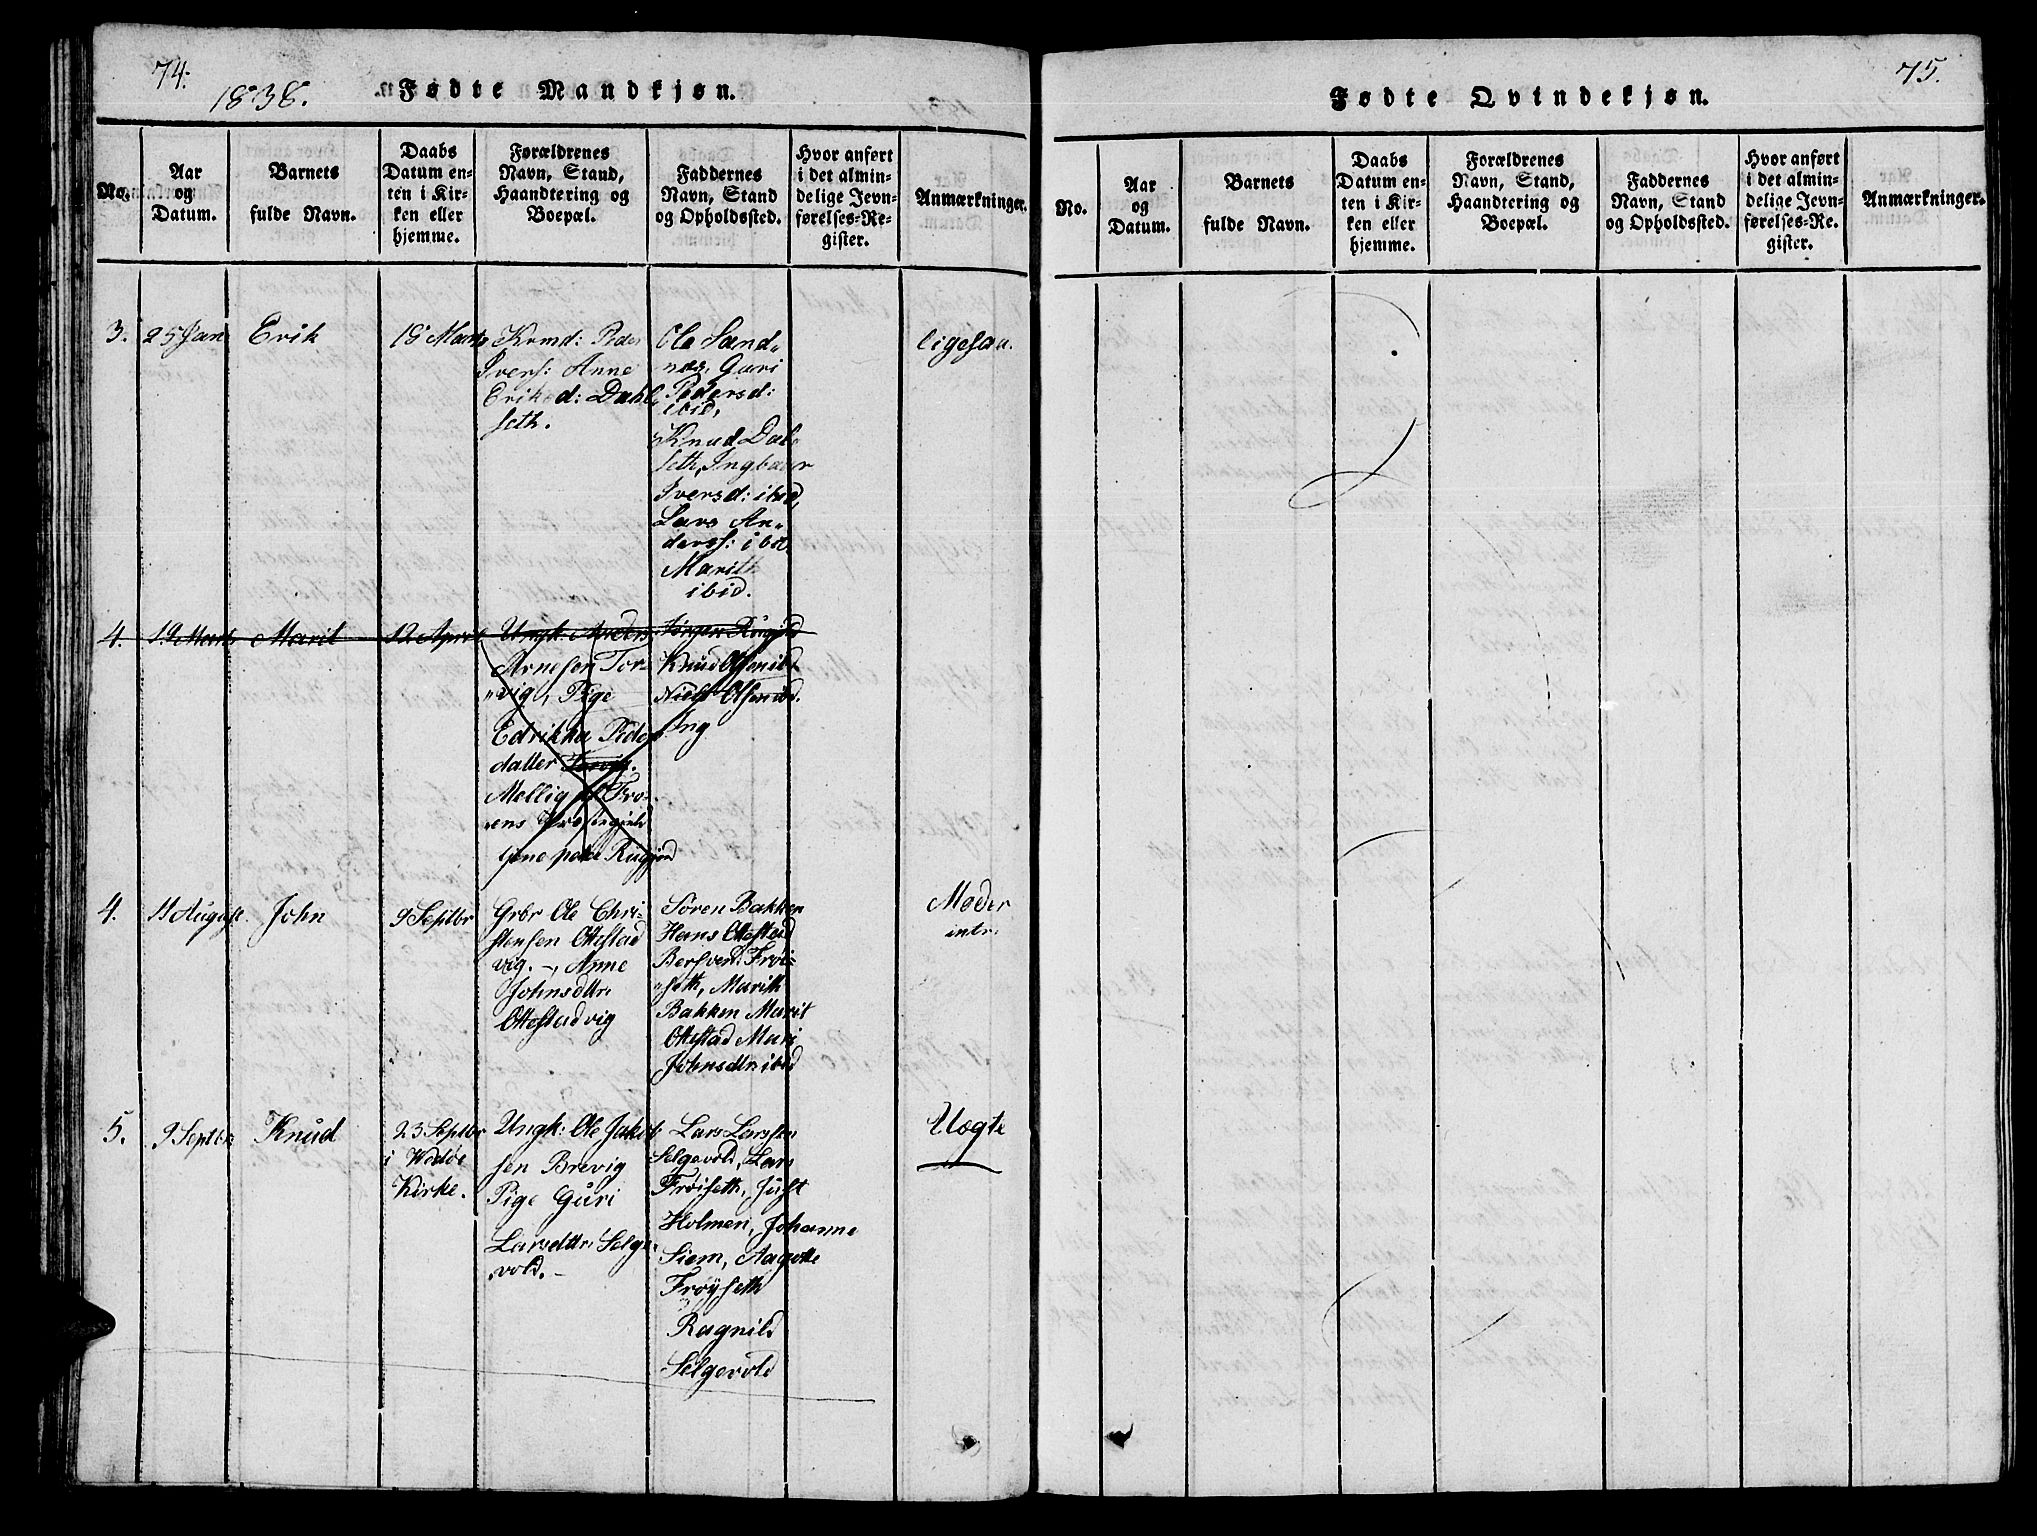 74.
1838.
Fødte Mandkjøn.
No.
Aar
og
Datum.
Barnets
fulde Navn.
Daabs
Datum en-
ten i Kir-
ken eller
hjemme.
Forældrenes
Navn, Stand,
Haandtering og
Boepæl.
Faddernes
Navn, Stand
og Opholdssted.
Hvor anført
i det almin-
delige Jevn-
førelses-Re-
gister.
Anmærkninger.
3.
25 Jan
Erik
19 Marts
Kvmd: Peder
Ivers: Anne
Eriksd: Dahl
seth.
Ole Sand-
næs, Guri
Pedersd:
ibid,
Knud Dals
seth, Ingbaar
Iversd: ibid,
Lars An-
derss: ibid,
Marith
ibid.
ligesaa.
4.
19 Marts
Marit
12 April
Ungk: Anders
Arnesen Tor-
vig, Pige
Edrikka Peders
datter Torvig.
Jørgen
Knud Olsen ibd
Niels Olsen ibd.
Ing
4.
11 August.
John
9 Septbr
Grbr Ole Chri-
stensen Ottestad
vig. -, Anne
Johnsdttr
Ottestadvig
Søren Bakken
Hans Ottestad
Bersven: Frøi-
seth, Marith
Bakken Marit
Ottestad Mari
Johnsdttr ibid
Moder
intr.
5.
9 Septbr
Knud
23 Septbr
i Wedøe
Kirke.
Ungk: Ole Jakob
sen Brevig
Pige Guri
Larsdttr Selge-
vold. -
Lars Larssen
Selgevold, Lars
Frøiseth, Just
Holmen, Johanne
Siem, Aagotte
Frøyseth
Ragnild
Selgevold
Uægte
75.
Fødte Qvindekjøn.
No.
Aar
og
Datum.
Barnets
fulde Navn.
Daabs
Datum en-
ten i Kir-
ken eller
hjemme.
Forældrenes
Navn, Stand,
Haandtering og
Boepæl.
Faddernes
Navn, Stand
og Opholdssted.
Hvor anført
i det almin-
delige Jevn-
førelses-Re-
gister.
Anmærkninger.